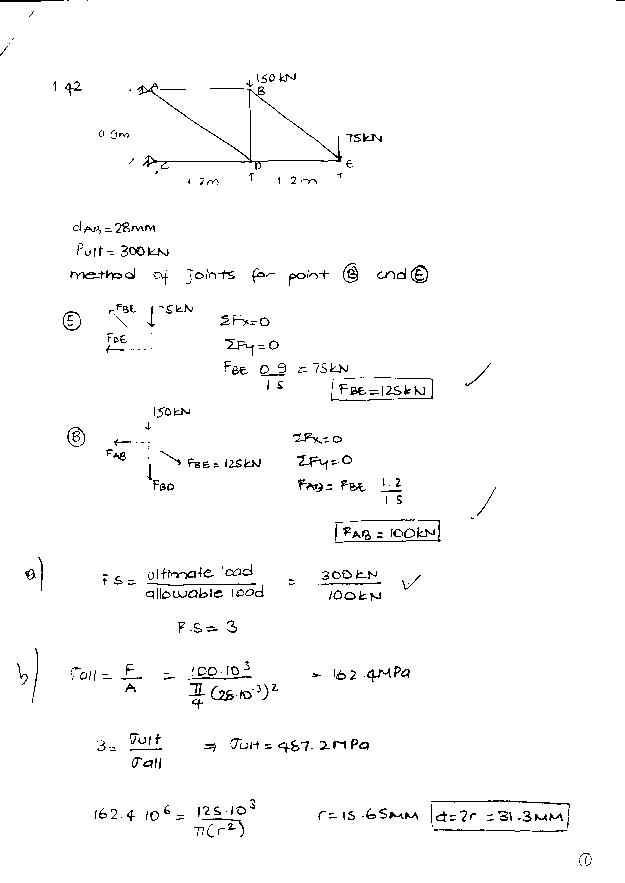 1 42
150 kN
B
0 9m
75kN
C
D
E
1.2m
1 2m
dAB = 28mm
Pult = 300kN
method of joints for point Ⓑ and Ⓔ
Ⓔ
FBE
75kN
FDE
ΣFx=0
ΣFy=0
FBE 0 9/1 5 = 75kN
FBE = 125kN
150kN
Ⓑ
FAB
FBE = 125kN
FBD
ΣFx=0
ΣFy=0
FAB = FBE 1.2/1 5
FAB = 100kN
a)
F S = ultimate load/allowable load = 300kN/100kN
F.S = 3
b)
σall = F/A = 100.10³/π/4 (28.10⁻³)² = 162.4MPa
3 = σult/σall ⇒ σult = 487.2MPa
162.4 10⁶ = 125.10³/π(r²)
r = 15.65MM
d=2r = 31.3MM
①